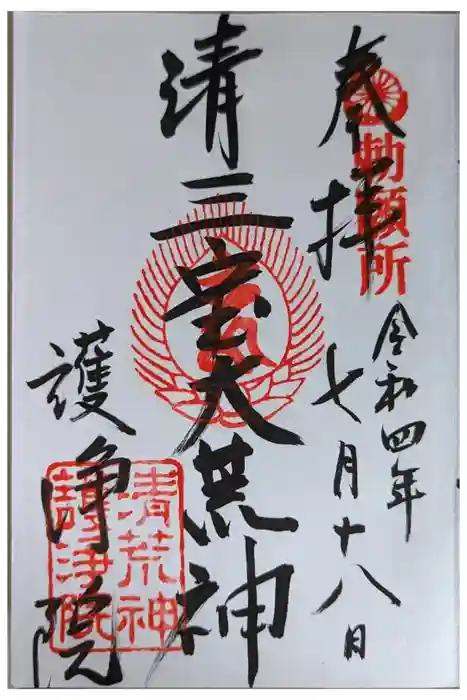 奉拝
勅願所
令和四年
七月十八日
清三宝大荒神
護浄院
清荒神
護浄院